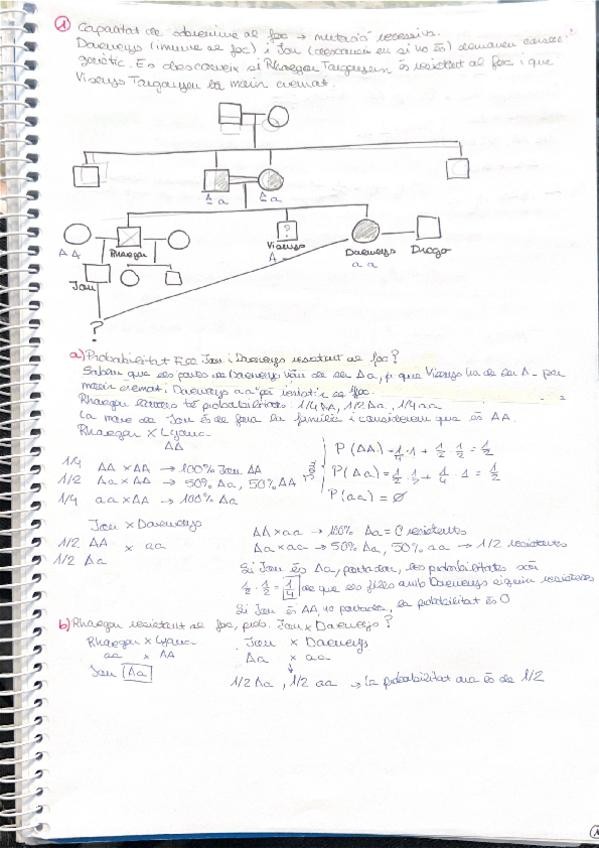 ① Capacitat de sobreviure al foc → mutació recessiva.
Daenerys (immune al foc) i Jon (desconeix en si ho és) demanen consell
genètic. Es desconeix si Rhaegar Targaryen és resistent al foc i que
Viserys Targaryen va morir cremat.
A a
A a
AA
Rhaegar
?
Viserys
A -
Daenerys
aa
Drogo
Jon
?
a) Probabilitat Fill Jon i Daenerys resistent al foc?
Sabem que els pares de Daenerys són Aa, ja que Viserys ha de ser A- per
morir cremat i Daenerys aa per resistir el foc.
Rhaegar té probabilitats: 1/4 AA, 1/2 Aa, 1/4 aa
La mare de Jon és de fora la família i considerem que és AA.
Rhaegar x Lyanna
AA
1/4 AA x AA → 100% Jon AA
1/2 Aa x AA → 50% Aa, 50% AA
1/4 aa x AA → 100% Aa
P(AA) = 1/4 · 1 + 1/2 · 1/2 = 1/2
P(Aa) = 1/2 · 1/2 + 1/4 · 1 = 1/2
P(aa) = Ø
Jon x Daenerys
1/2 AA x aa
1/2 Aa
AA x aa → 100% Aa = 0 resistents
Aa x aa → 50% Aa, 50% aa → 1/2 resistents
Si Jon és Aa, portador, les probabilitats són
1/2 · 1/2 = 1/4 de que els fills amb Daenerys siguin resistents
Si Jon és AA, no portador, la probabilitat és 0
b) Rhaegar resistent al foc, prob. Jon x Daenerys?
Rhaegar x Lyanna
aa x AA
Jon Aa
Jon x Daenerys
Aa x aa
1/2 Aa, 1/2 aa → La probabilitat ara és de 1/2